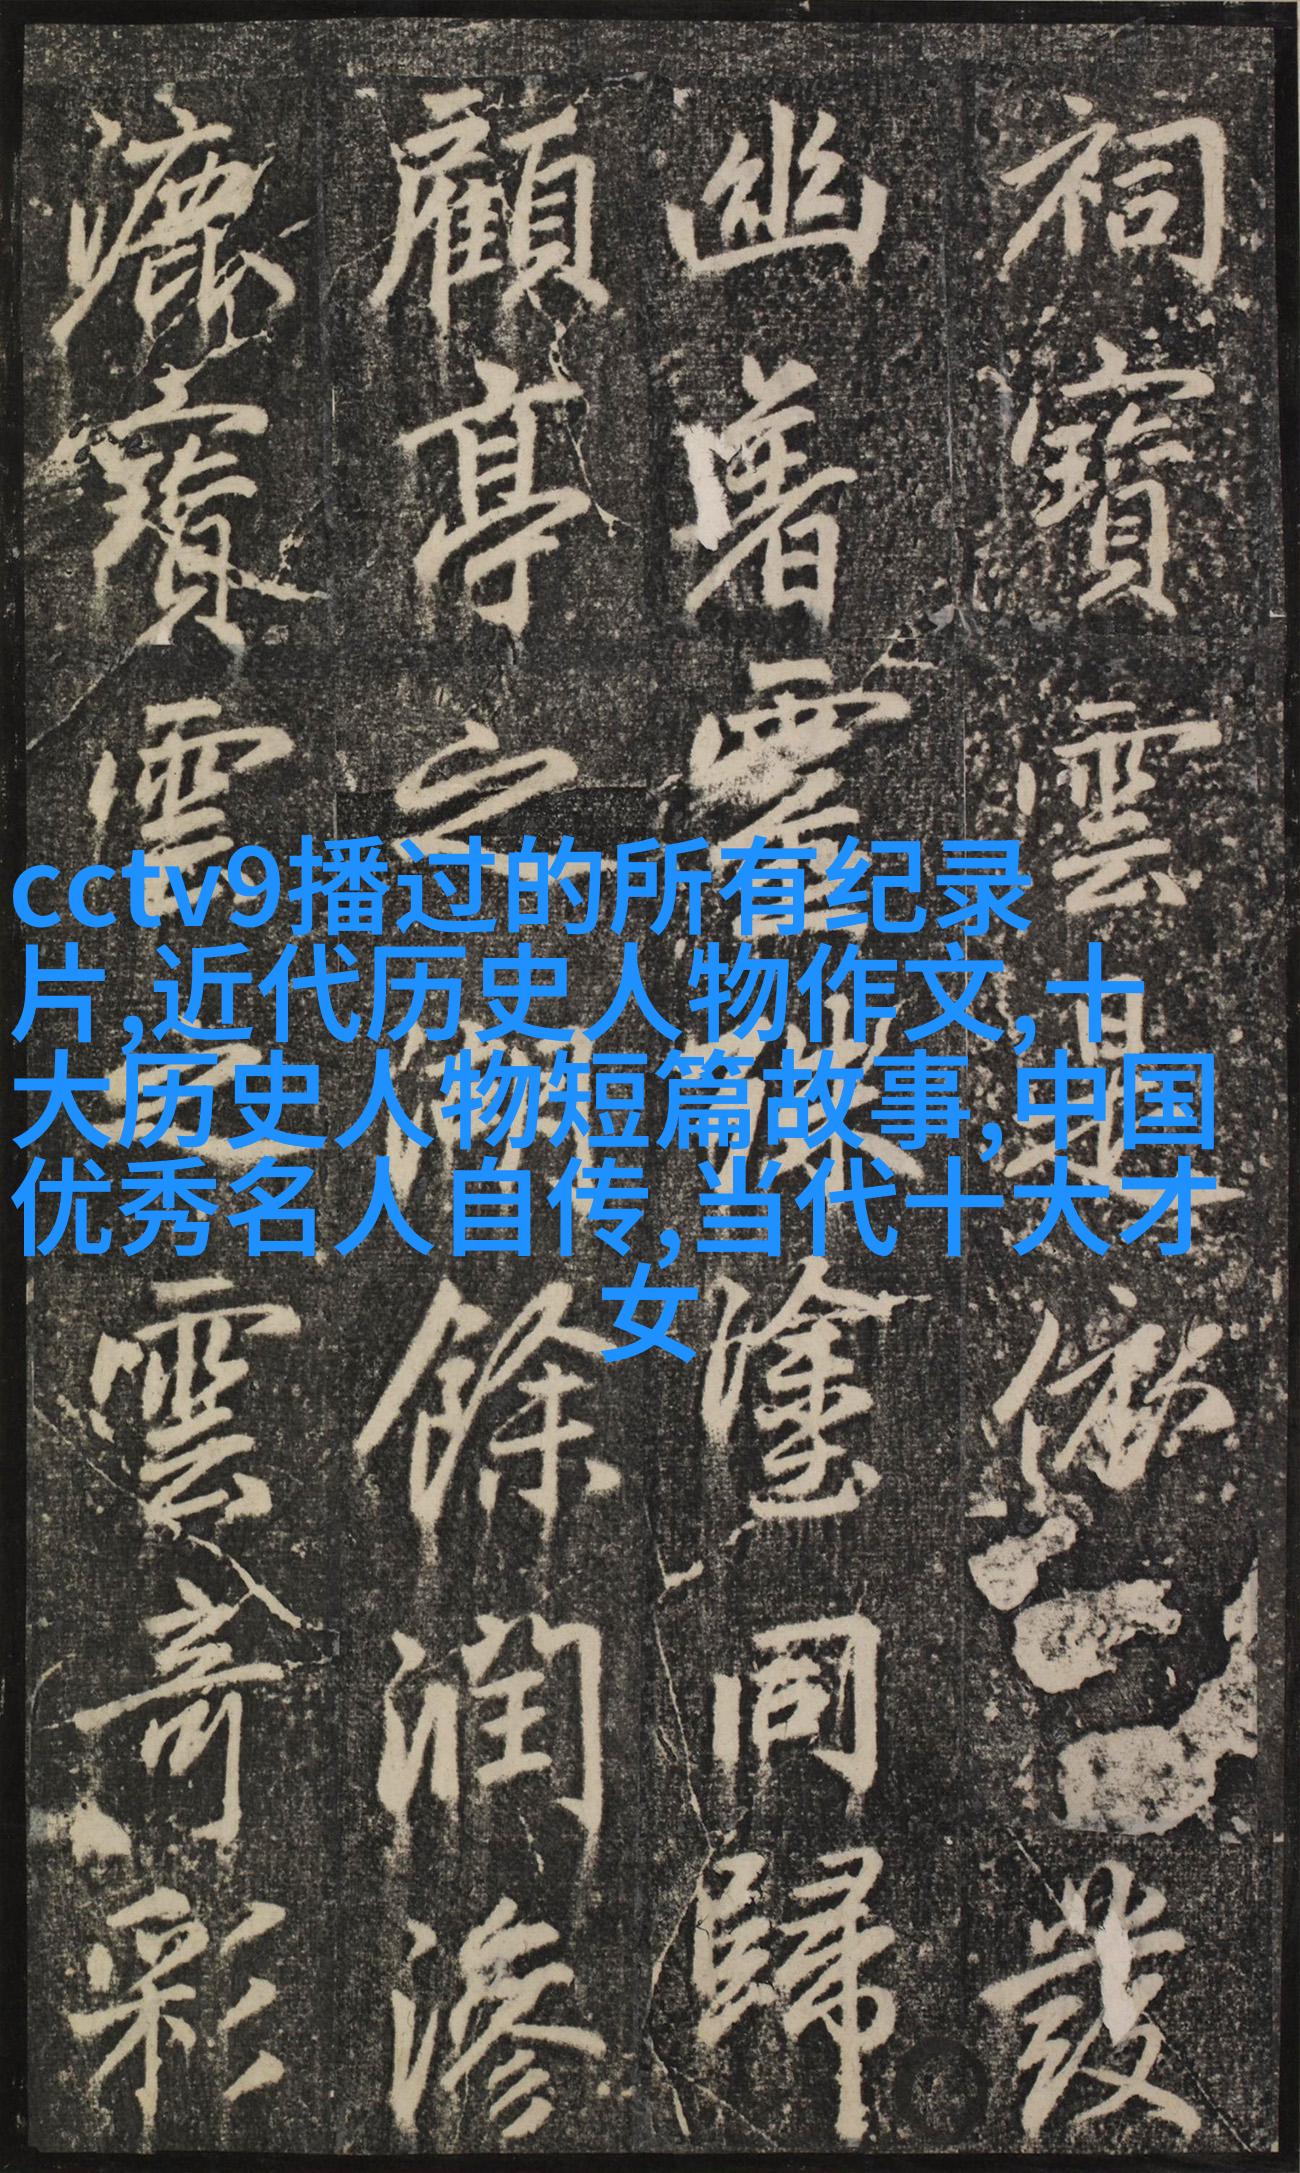 cctv9播过的所有纪录
片,近代历史人物作文,十
大历史人物短篇故事,中国
优秀名人自传,当代十大才
女
祠寶雲是俶發
幽署靈同歸
顧亭之餘潤滲
漉寶雲之雲奇彩